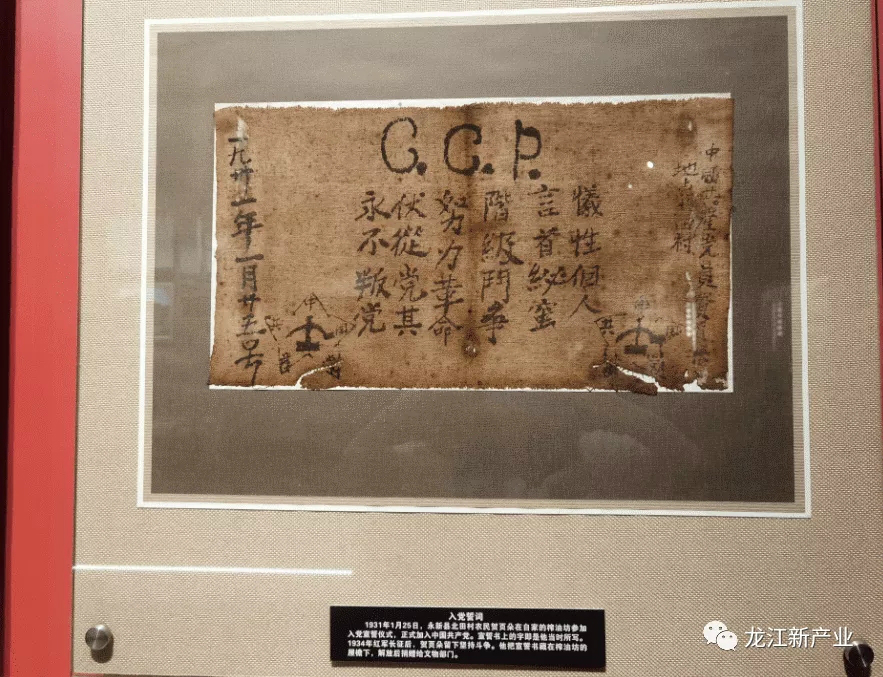 C.C.P.
中國共產党員
地点北田村
犧牲個人
言首秘蜜
階級鬥爭
努力革命
伏從党其
永不叛党
一九卅一年一月廿五号
入党誓词
1931年1月25日，永新县北田村农民贺页朵在自家的榨油坊参加
入党宣誓仪式，正式加入中国共产党。宣誓书上的字即是他当时所写。
1934年红军长征后，贺页朵留下坚持斗争。他把宣誓书藏在榨油坊的
屋檐下，解放后捐赠给文物部门。
龙江新产业